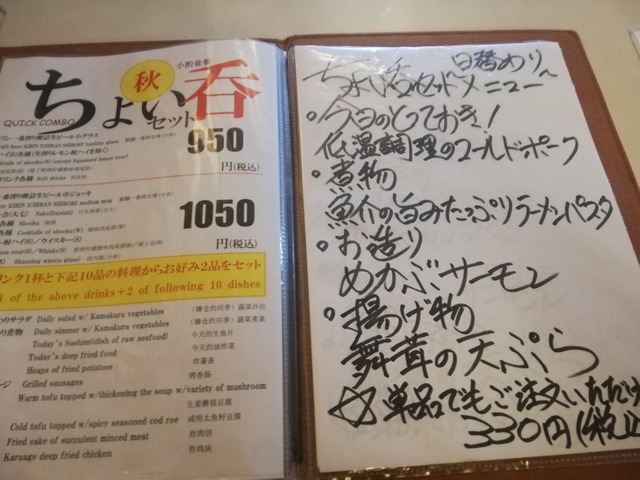 小酌套餐
秋
ちょい呑
QUICK COMBO
セット
950
円(税込)
KIRIN ICHIBAN SHIBORI
Soft drinks
1050
円(税込)
リンク1杯と下記10品の料理からお好み2品をセット
1 of the above drinks+2 of following 10 dishes
サラダ Daily salad w/Kamakura vegetables
り煮物 Daily simmer w/Kamakura vegetables
Today's Sashimi(dish of raw seafood) 今天的生鱼片
Today's deep fried food 今天的油炸菜
Heaps of fried potatoes 炸薯条
ージ Grilled sausages 烤香肠
Warm tofu topped w/thickening the soup w/variety of mushroom
生姜蘑菇豆腐
Cold tofu topped w/spicy seasoned cod roe 咸明太鱼籽豆腐
Fried cake of succulent minced meat 炸肉饼
Karaage deep fried chicken 炸鸡块
日替わり
ちょい呑セットメニュー
・今日のとっておき!
低温調理のコールドポーク
・煮物
魚介の旨みたっぷりラーメンパスタ
・お造り
めかぶサーモン
・揚げ物
舞茸の天ぷら
☆単品でもご注文いただけ
330円(税込